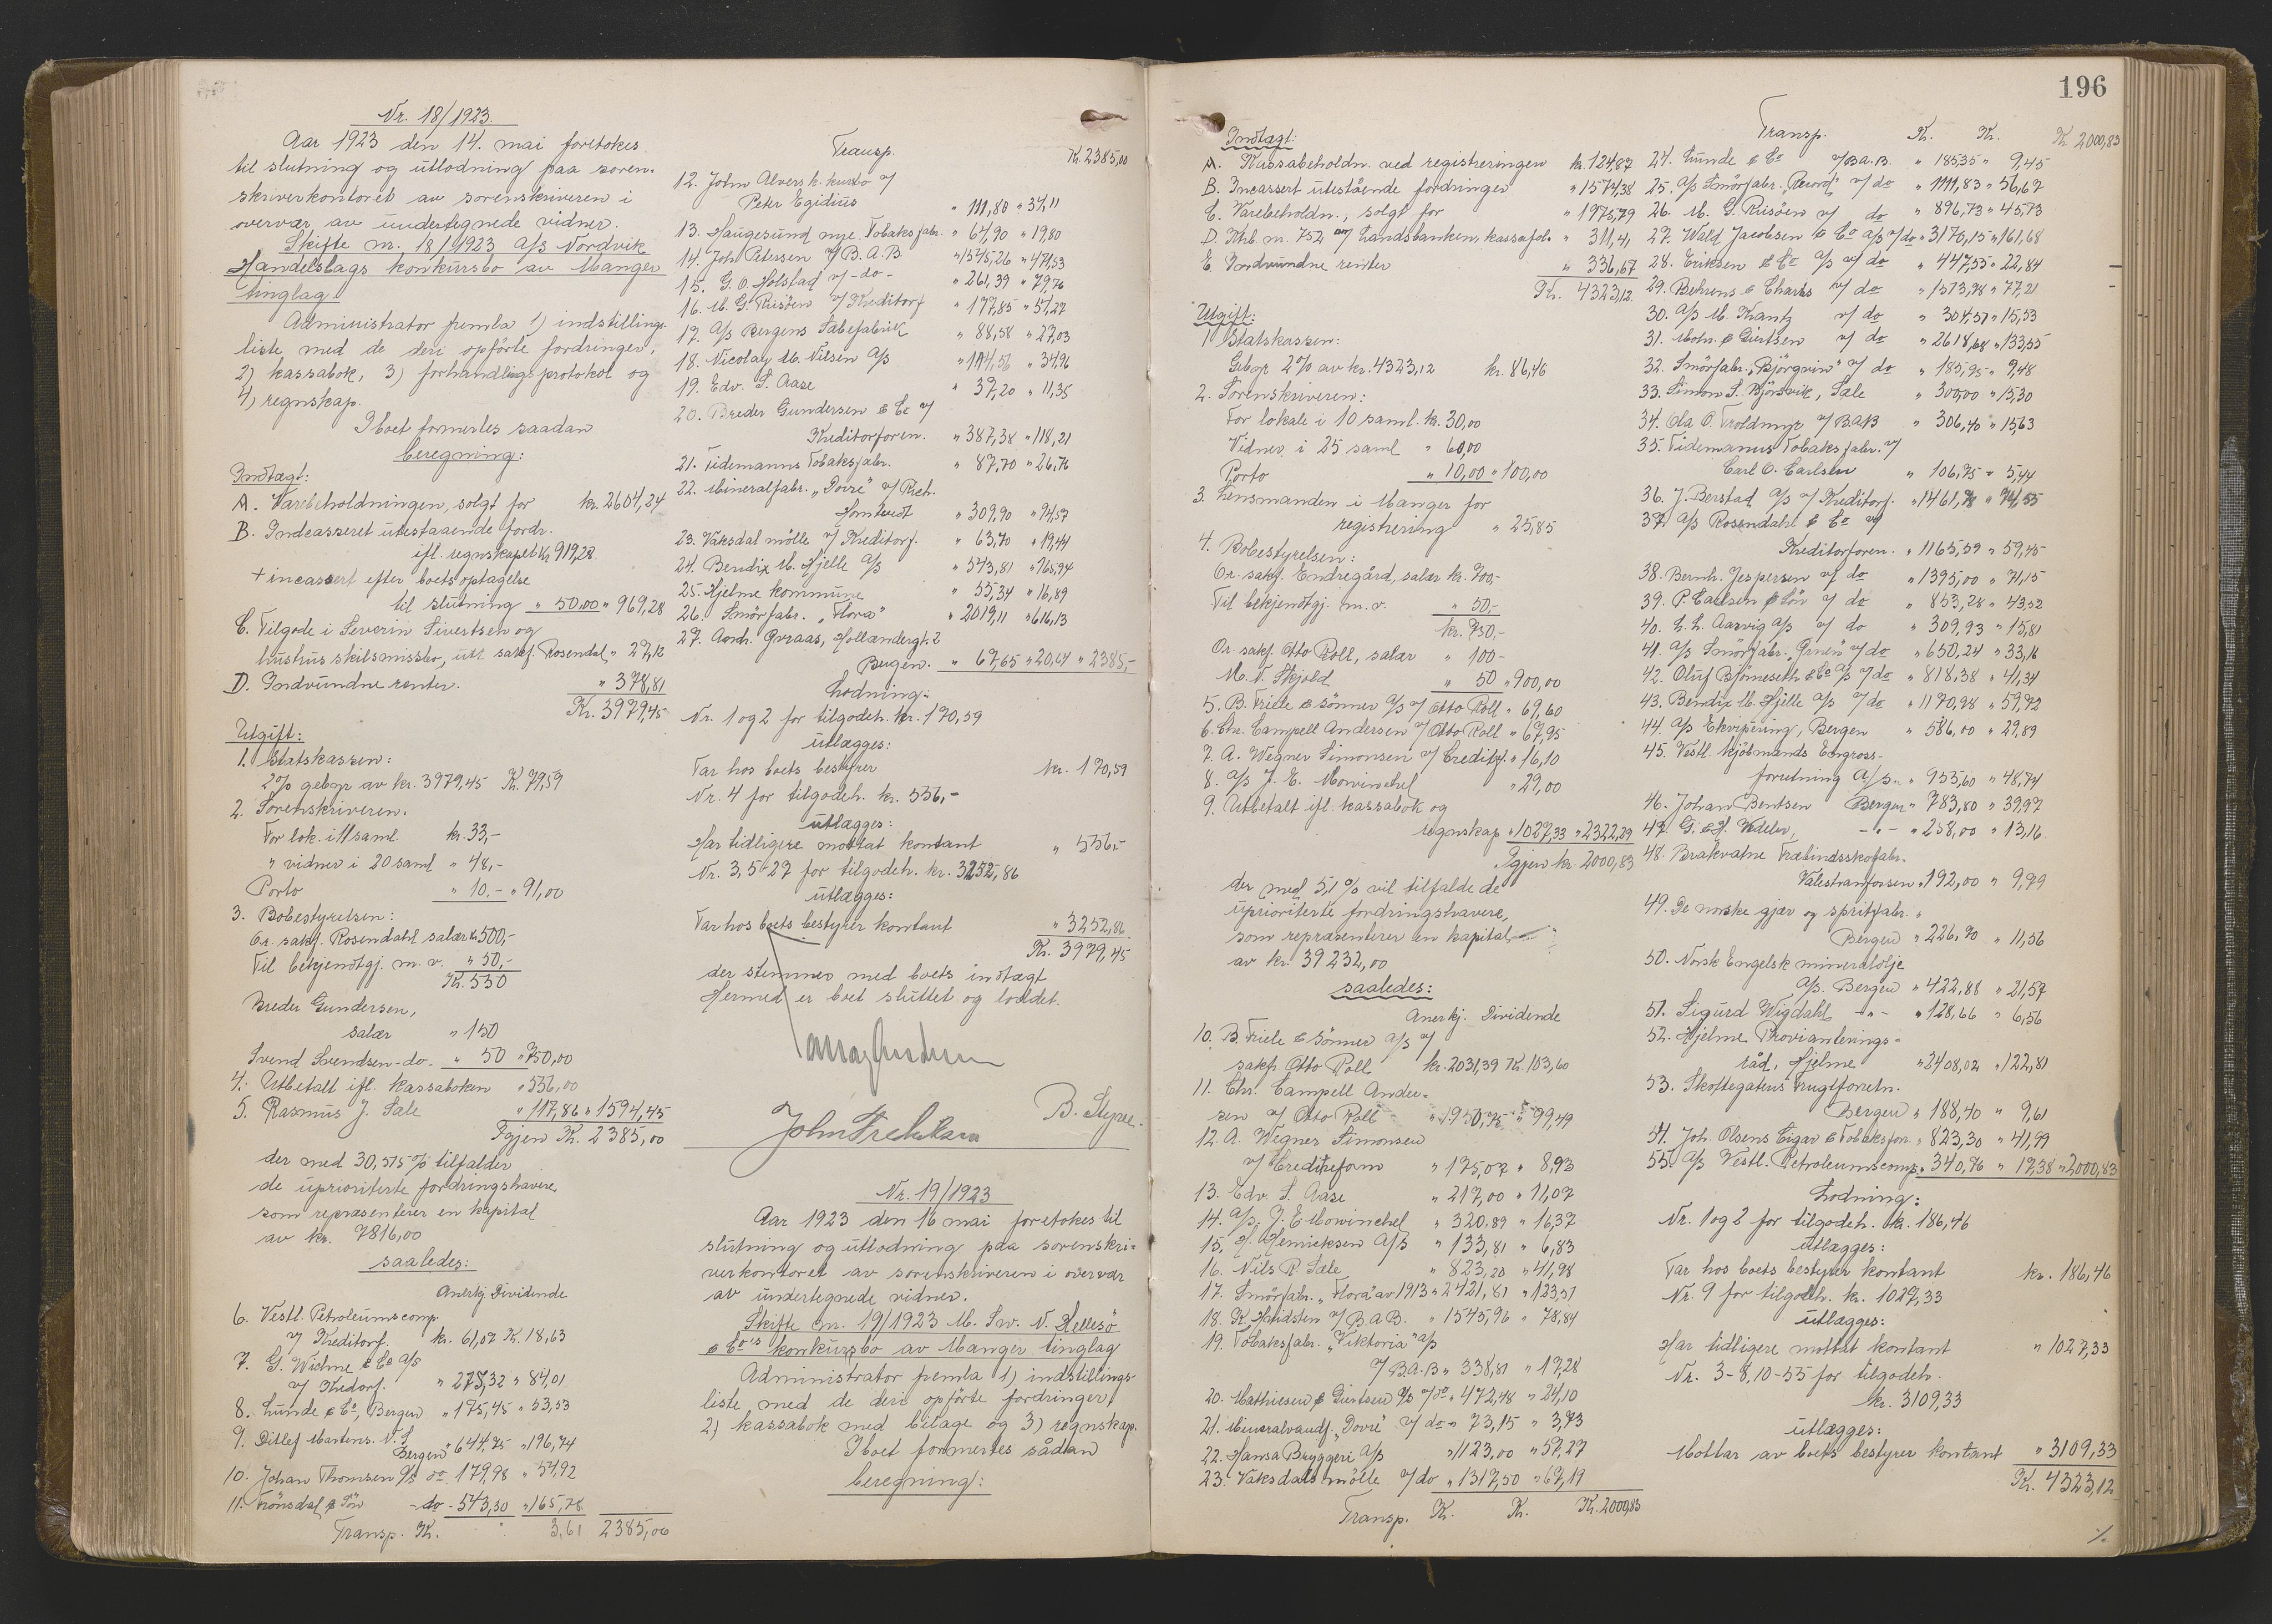 Nr. 18/1923.
Aar 1923 den 14. mai foretokes
til slutning og utlodning paa soren-
skriverkontoret av sorenskriveren i
overvær av undertegnede vidner.
Skifte nr. 18/1923 A/S Nordvik
Handelslags konkursbo av Manger
tinglag.
Administrator femla 1) indstillings-
liste med de deri opförte fordringer,
2) kassabok, 3) forhandlingsprotokol og
4) regnskap.
I boet formertes saadan
beregning:
Indtægt:
A. Varebeholdningen, solgt for kr. 2604,24
B. Indcasseret utestaaende fordr.
ifl. regnskapet kr. 919,28
+ incassert efter boets optagelse
til slutning " 50.00 " 969,28
C. Tilgode i Severin Sivertsen og
hustrus skilsmissbo, utl. sakf. Rosendal " 27,12
D. Indvundne renter. " 378,81
Kr. 3979,45
Utgift:
1. Statskassen:
2% gebyr av kr. 3979,45 Kr. 79,59
2. Sorenskriveren.
For lok. i 11 saml. kr. 33,-
" vidner i 20 saml " 48,-
Porto " 10.- " 91,00
3. Bobestyrelsen:
Or. sakf. Rosendahl salær kr. 500,-
Til bekjendtgj. m. v. " 50,-
Kr. 550
Breder Gundersen,
salær " 150
Svend Svendsen -do- " 50 " 750,00
4. Utbetalt ifl. kassaboken " 556,00
5. Rasmus J. Sæle " 117,86 " 1594,45
Igjen Kr. 2385,00
der med 30,515% tilfalder
de uprioriterte fordringshavere,
som repræsenterer en kapital
av kr. 7816,00
saaledes:
Anerkj. Dividende
6. Vestl. Petroleumscomp.
v/ Kreditorf. kr. 61,07 Kr. 18,63
7. G. Widme & Co A/S
v/ Kredorf. " 275,32 " 84,01
8. Lunde & Co, Bergen " 175,45 " 53,53
9. Ditlef Martens. N. f.
Bergen " 644,75 " 196,74
10. Johan Thomsen A/S do 179,98 " 54,92
11. Frönsdal & Sön -do- 543,30 " 165,78
Transp. Kr. 3,61 2385,00
Transp. Kr. 2385,00
12. John Alvers k. kusto v/
Peter Egidius " 111,80 " 34,11
13. Haugesund nye Tobaksfabr. " 64,90 " 19,80
14. Joh. Petersen v/ B. A. B. " 1545,26 " 471,53
15. G. O. Holstad v/ -do- " 261,39 " 79,76
16. M. G. Risöen v/ Kreditorf " 177,85 " 54,27
17. A/S Bergens Sæbefabrik " 88,58 " 27,03
18. Nicolay M. Nilsen A/S " 114,56 " 34,96
19. Edv. S. Aase " 37,20 " 11,35
20. Breder Gundersen & Co v/
Kreditorforen. " 387,38 " 118,21
21. Tidemanns Tobaksfabr. " 87,70 " 26,76
22. Mineralfabr. "Dovre" v/ Rich.
Homtvedt " 309,90 " 94,57
23. Vaksdal mölle v/ Kreditorf. " 63,70 " 19,44
24. Bendix M. Hjelle A/S " 543,81 " 165,94
25. Hjelme kommune " 55,34 " 16,89
26. Smörfabr. "Flora" " 2019,11 " 616,13
27. Aardr. Gvaas, Hollændergt. 2
Bergen. " 67,65 " 20,64 " 2385,-
Lodning:
Nr. 1 og 2 for tilgodeh. kr. 170,59
utlægges:
Tar hos boets bestyrer kr. 170,59
Nr. 4 for tilgodeh. kr. 556,-
utlægges:
Har tidligere mottat kontant " 556,-
Nr. 3, 5-27 for tilgodeh. kr. 3252,86
utlægges:
Tar hos boets bestyrer kontant " 3252,86
Kr. 3979,45
der stemmer med boets indtægt
Hermed er boet sluttet og loddet.
B. Styve.
Nr. 19/1923
Aar 1923 den 16 mai foretokes til
slutning og utlodning paa sorenskri-
verkontoret av sorenskriveren i overvær
av undertegnede vidner.
Skifte nr. 19/1923 M. Sw. N. Hellesö
& Co's konkursbo av Manger tinglag
Administrator femla 1) indstillings-
liste med de deri opförte fordringer,
2) kassabok med bilage og 3) regnskap.
I boet formertes sådan
beregning:
196
Indtægt:
A. Kassabeholdn. ved registreringen kr. 124,87
B. Incassert utestående fordringer " 1574,38
C. Varebeholdn., solgt for " 1975,79
D. Ktrb. nr. 752 av Landsbanken, kassafol. " 311,41
E. Indvundne renter " 336,67
Kr. 4323,12
Utgift:
1 Statskassen:
Gebyr 2% av kr. 4323,12 kr. 86,46
2. Sorenskriveren:
For lokale i 10 saml. kr. 30,00
Vidner i 25 saml " 60,00
Porto " 10,00 " 100,00
3. Lensmanden i Manger for
registrering " 25,85
4. Bobestyrelsen:
Or. sakf. Endregård, salær kr. 700,-
Til bekjendtgj. m. v. " 50,-
kr. 750,-
Or. sakf. Otto Roll, salær " 100-
M. N. Skjold " 50 " 900,00
5. B. Friele & Sönner A/S v/ Otto Roll " 69,60
6. Chr. Campell Andersen v/ Otto Roll " 67,95
7. A. Wegner Simonsen v/ Creditrf. " 16,10
8. A/S J. E. Mowinckel " 29,00
9. Utbetalt ifl. kassabok og
regnskap " 1027,33 " 2322,29
Igjen kr. 2000,83
der med 5,1% vil tilfalde de
uprioriterte fordringshavere,
som repræsenterer en kapital
av kr. 39232,00
saaledes:
Anerkj. Dividende
10. B. Friele & Sönner A/S v/
sakf. Otto Roll kr. 2031,39 Kr. 103,60
11. Chr. Campell Ander-
sen v/ Otto Roll " 1950,75 " 99,49
12. A. Wegner Simonsen
v/ Creditreform " 175,07 " 8,93
13. Edv. S. Aase " 217,00 " 11,07
14. A/S J. E. Mowinckel " 320,89 " 16,37
15. H. Henricksen A/S " 133,81 " 6,83
16. Nils R. Sæle " 823,20 " 41,98
17. Smörfabr. "Flora" av 1913 " 2421,81 " 123,51
18. K. Haldsten v/ B. A. B. " 1545,96 " 78,84
19. Tobaksfabr. "Viktoria" A/S
v/ B.A.B " 338,81 " 17,28
20. Mathiesen & Giertsen A/S v/ do " 472,48 " 24,10
21. Mineralvandf. "Dovre" v/ do " 73,15 " 3,73
22. Hansa Bryggeri A/S " 1123,00 " 57,27
23. Vaksdals mölle v/ do " 1317,50 " 67,19
Transp. Kr. Kr. Kr. 2000,83
Transp. Kr. Kr. Kr. 2000,83
24. Lunde & Co v/ B.A.B. " 185,35 " 9,45
25. A/S Smörfabr. "Record" v/ do " 1111,83 " 56,67
26. M. G. Risöen v/ do " 896,73 " 45,73
27. Wald. Jacobsen & Co A/S v/ do " 3170,15 " 161,68
28. Eriksen & Co A/S v/ do " 447,55 " 22,84
29. Behrens & Charles v/ do " 1513,98 " 77,21
30. A/S M. Krantz v/ do " 304,57 " 15,53
31. Mohn & Giertsen v/ do " 2618,68 " 133,55
32. Smörfabr. "Björgvin" v/ do " 185,95 " 9,48
33. Simon S. Björsvik, Sæle " 300,00 " 15,30
34. Ola O. Troldmyr v/ B.A.B " 306,40 " 15,63
35. Tidemanns Tobaksfabr. v/
Carl O. Carlsen " 106,75 " 5,44
36. J. Berstad A/S v/ Kreditorf. " 1461,78 " 74,55
37. A/S Rosendahl & Co v/
Kreditorforen. " 1165,59 " 59,45
38. Bernh. Jespersen v/ do " 1395,00 " 71,15
39. P. Carlsen & Sön v/ do " 853,28 " 43,52
40. L. L. Aasvig A/S v/ do " 309,93 " 15,81
41. A/S Smörfabr. "Örnen" v/ do " 650,24 " 33,16
42. Oluf Björneseth & Co A/S v/ do " 818,38 " 41,34
43. Bendix M. Hjelle A/S v/ do " 1170,98 " 59,72
44. A/S Ekvipering, Bergen " 586,00 " 29,89
45. Vestl. kjöbmænds Engross-
foretning A/S. " 955,60 " 48,74
46. Johan Bentsen Bergen " 783,80 " 39,97
47. G. & H. Vedeler, - " - " 258,00 " 13,16
48. Brakvatne Træbindsskofabr.
Valestranfossen " 192,00 " 9,79
49. De norske gjær og spritfabr.
Bergen " 226,70 " 11,56
50. Norsk Engelsk mineralolje
A/S. Bergen " 422,88 " 21,57
51. Sigurd Wigdahl - " - " 128,66 " 6,56
52. Hjelme Provianterings-
råd, Hjelme " 2408,02 " 122,81
53. Skottegatens Frugtforretn.
Bergen " 188,40 " 9,61
54. Joh. Olsens Cigar & Tobaksforr. " 823,30 " 41,99
55. A/S Vestl. Petroleumscomp. " 340,76 " 17,38 " 2000,83
Lodning:
Nr. 1 og 2 for tilgodeh. kr. 186,46
utlægges:
Tar hos boets bestyrer kontant kr. 186,46
Nr. 9 for tilgodeh. kr. 1027,33
utlægges:
Har tidligere mottat kontant " 1027,33
Nr. 3-8, 10-55 for tilgodeh.
kr. 3109,33
utlægges:
Mottar av boets bestyrer kontant " 3109,33
Kr. 4323,12